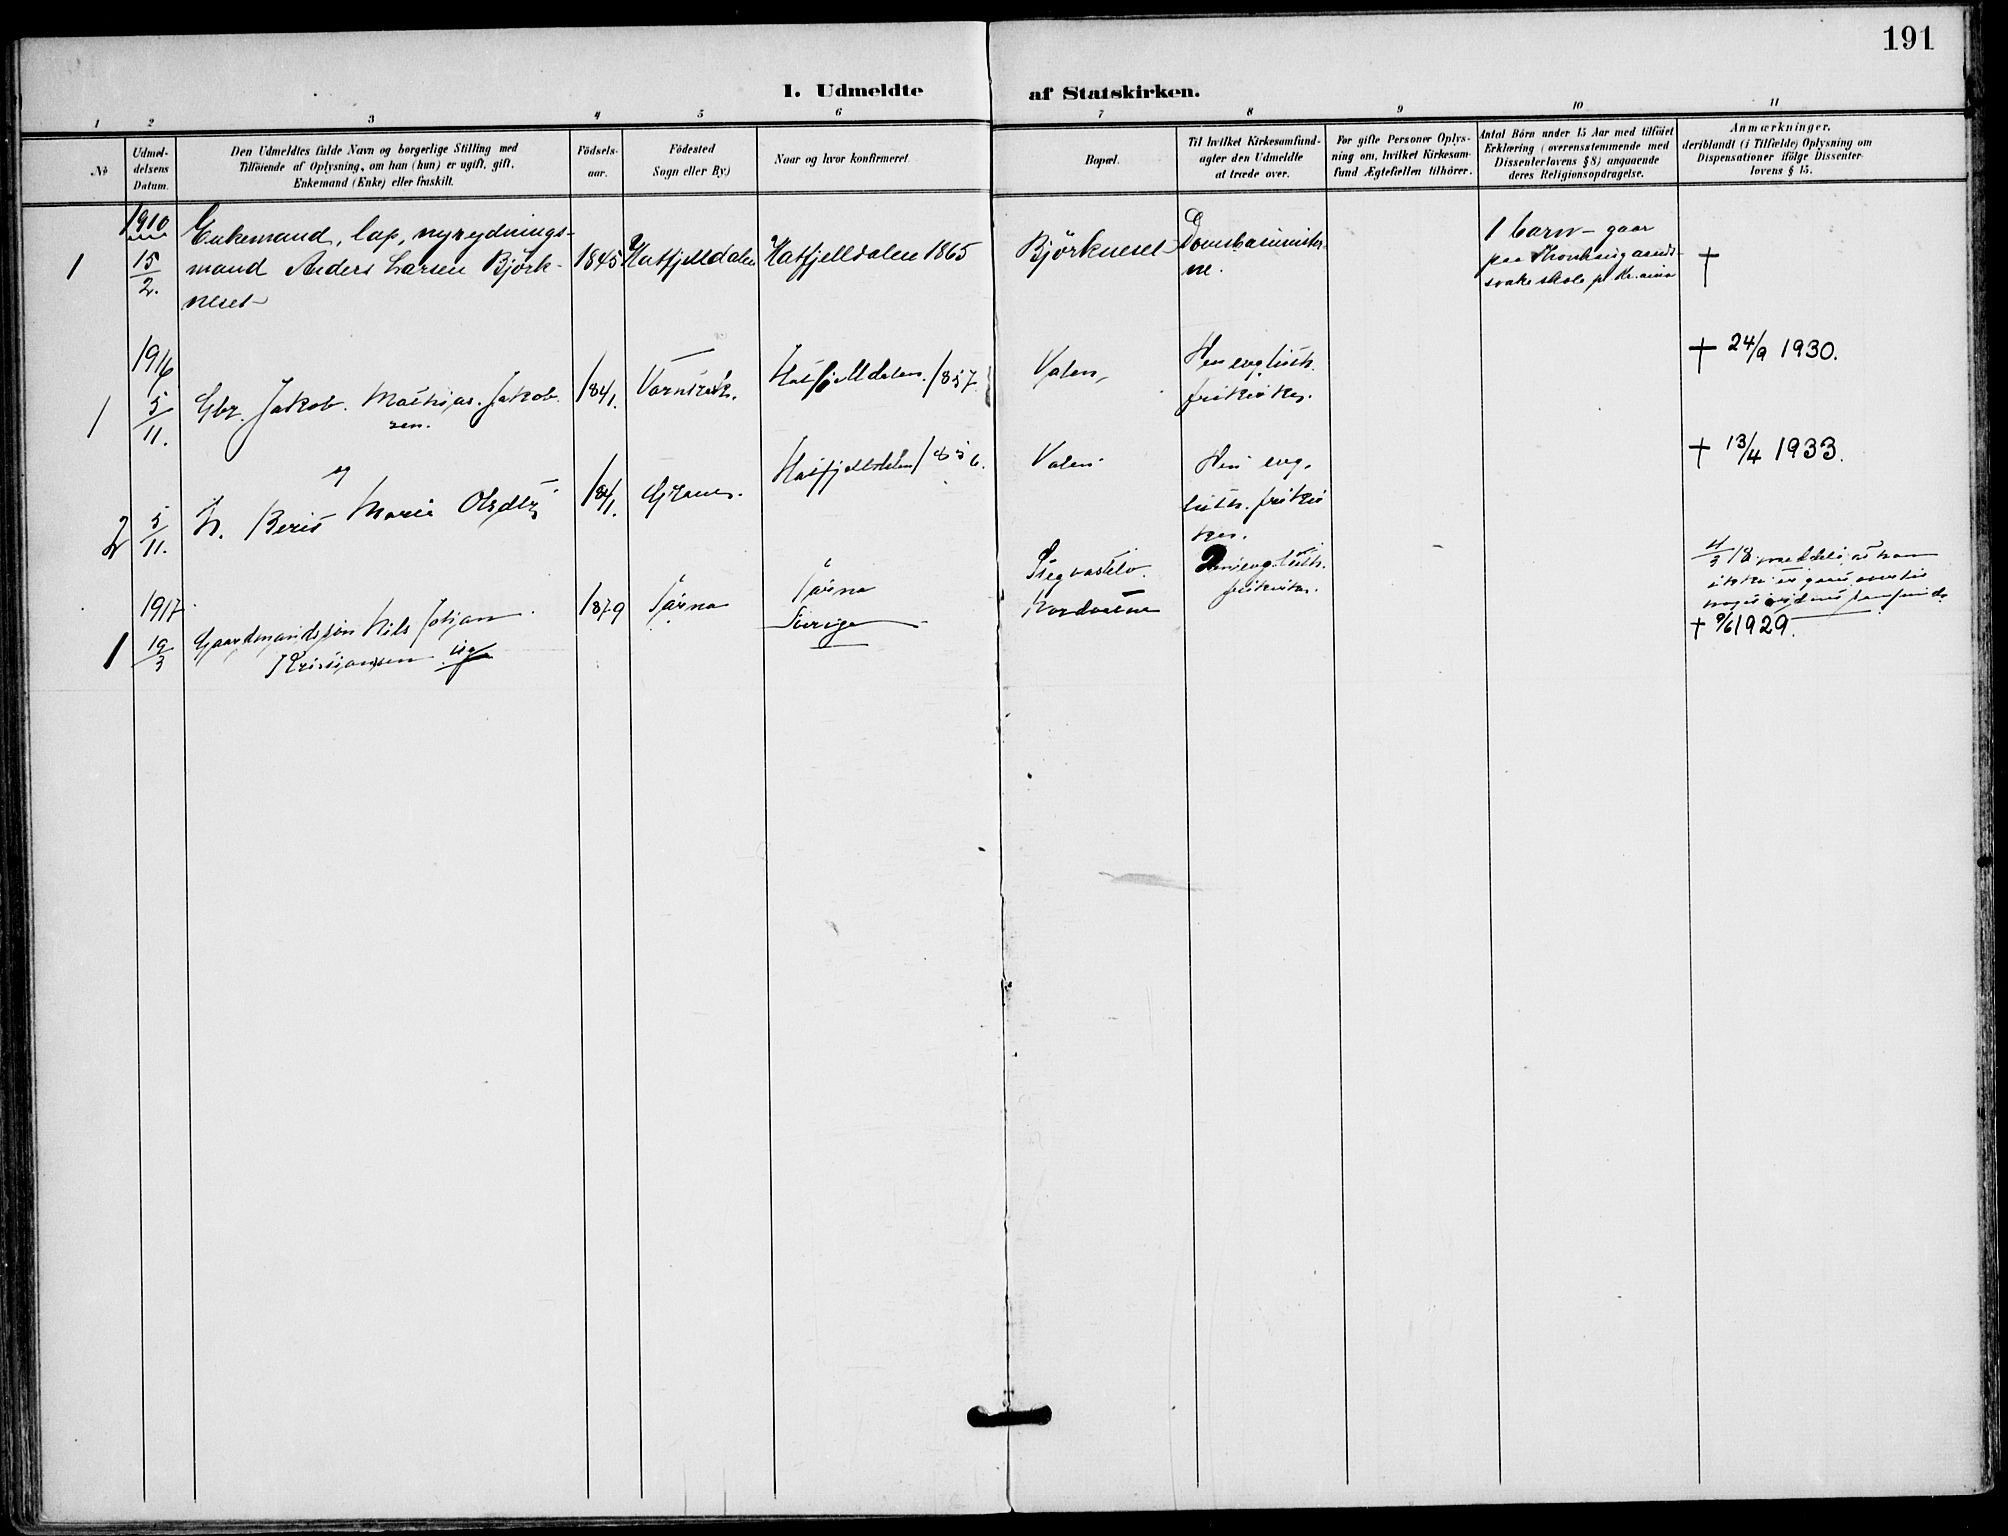 191
I. Udmeldte af Statskirken.
1 2 3 4 5 6 7 8 9 10 11
№
Udmel-
delsens
Datum.
Den Udmeldtes fulde Navn og borgerlige Stilling med
Tilføiende af Oplysning, om han (hun) er ugift, gift,
Enkemand (Enke) eller fraskilt.
Fødsels-
aar.
Fødested
Sogn eller By.)
Naar og hvor konfirmeret.
Bopæl.
Til hvilket Kirkesamfund-
agter den Udmeldte
at træde over.
For gifte Personer Oplys-
ning om, hvilket Kirkesam-
fund Ægtefællen tilhører.
Antal Börn under 15 Aar med tilföiet
Erklæring (overensstemmende med
Dissenterlovens § 8) angaaende
deres Religionsopdragelse.
Anmærkninger,
deriblandt (i Tilfælde) Oplysning om
Dispensationer ifølge Dissenter-
lovens § 15.
1910
1
15/2.
Enkemand, lap, nyrydnings-
mand Anders Larsen Björk-
neset
1845
Hatfjelldalen
Hatfjelldalen 1865
Björkneset
1 barn - gaar
paa
skole
†
1916
1
5/11.
Gbr. Jakob. Mathias. Jakob.
sen.
1841.
Hatfjelldalen. 1857
Valen,
Den evg luth.
frikirke.
† 24/9 1930.
og
2
5/11.
h. Berit Maria Olsdtr
1841.
Granes.
Hatfjelldalen 1856.
Valen
Den evg.
luth. frikir
ken.
† 13/4 1933.
1917
1
19/3
Gaardmandssøn Nils Johan
Kristiansen ug
1879
Tärna
Tärna
Sverige
Den evg. luth.
frikirke.
18 meddelt, at han
ikke er gaaet over til
noget
† 9/6 1929.